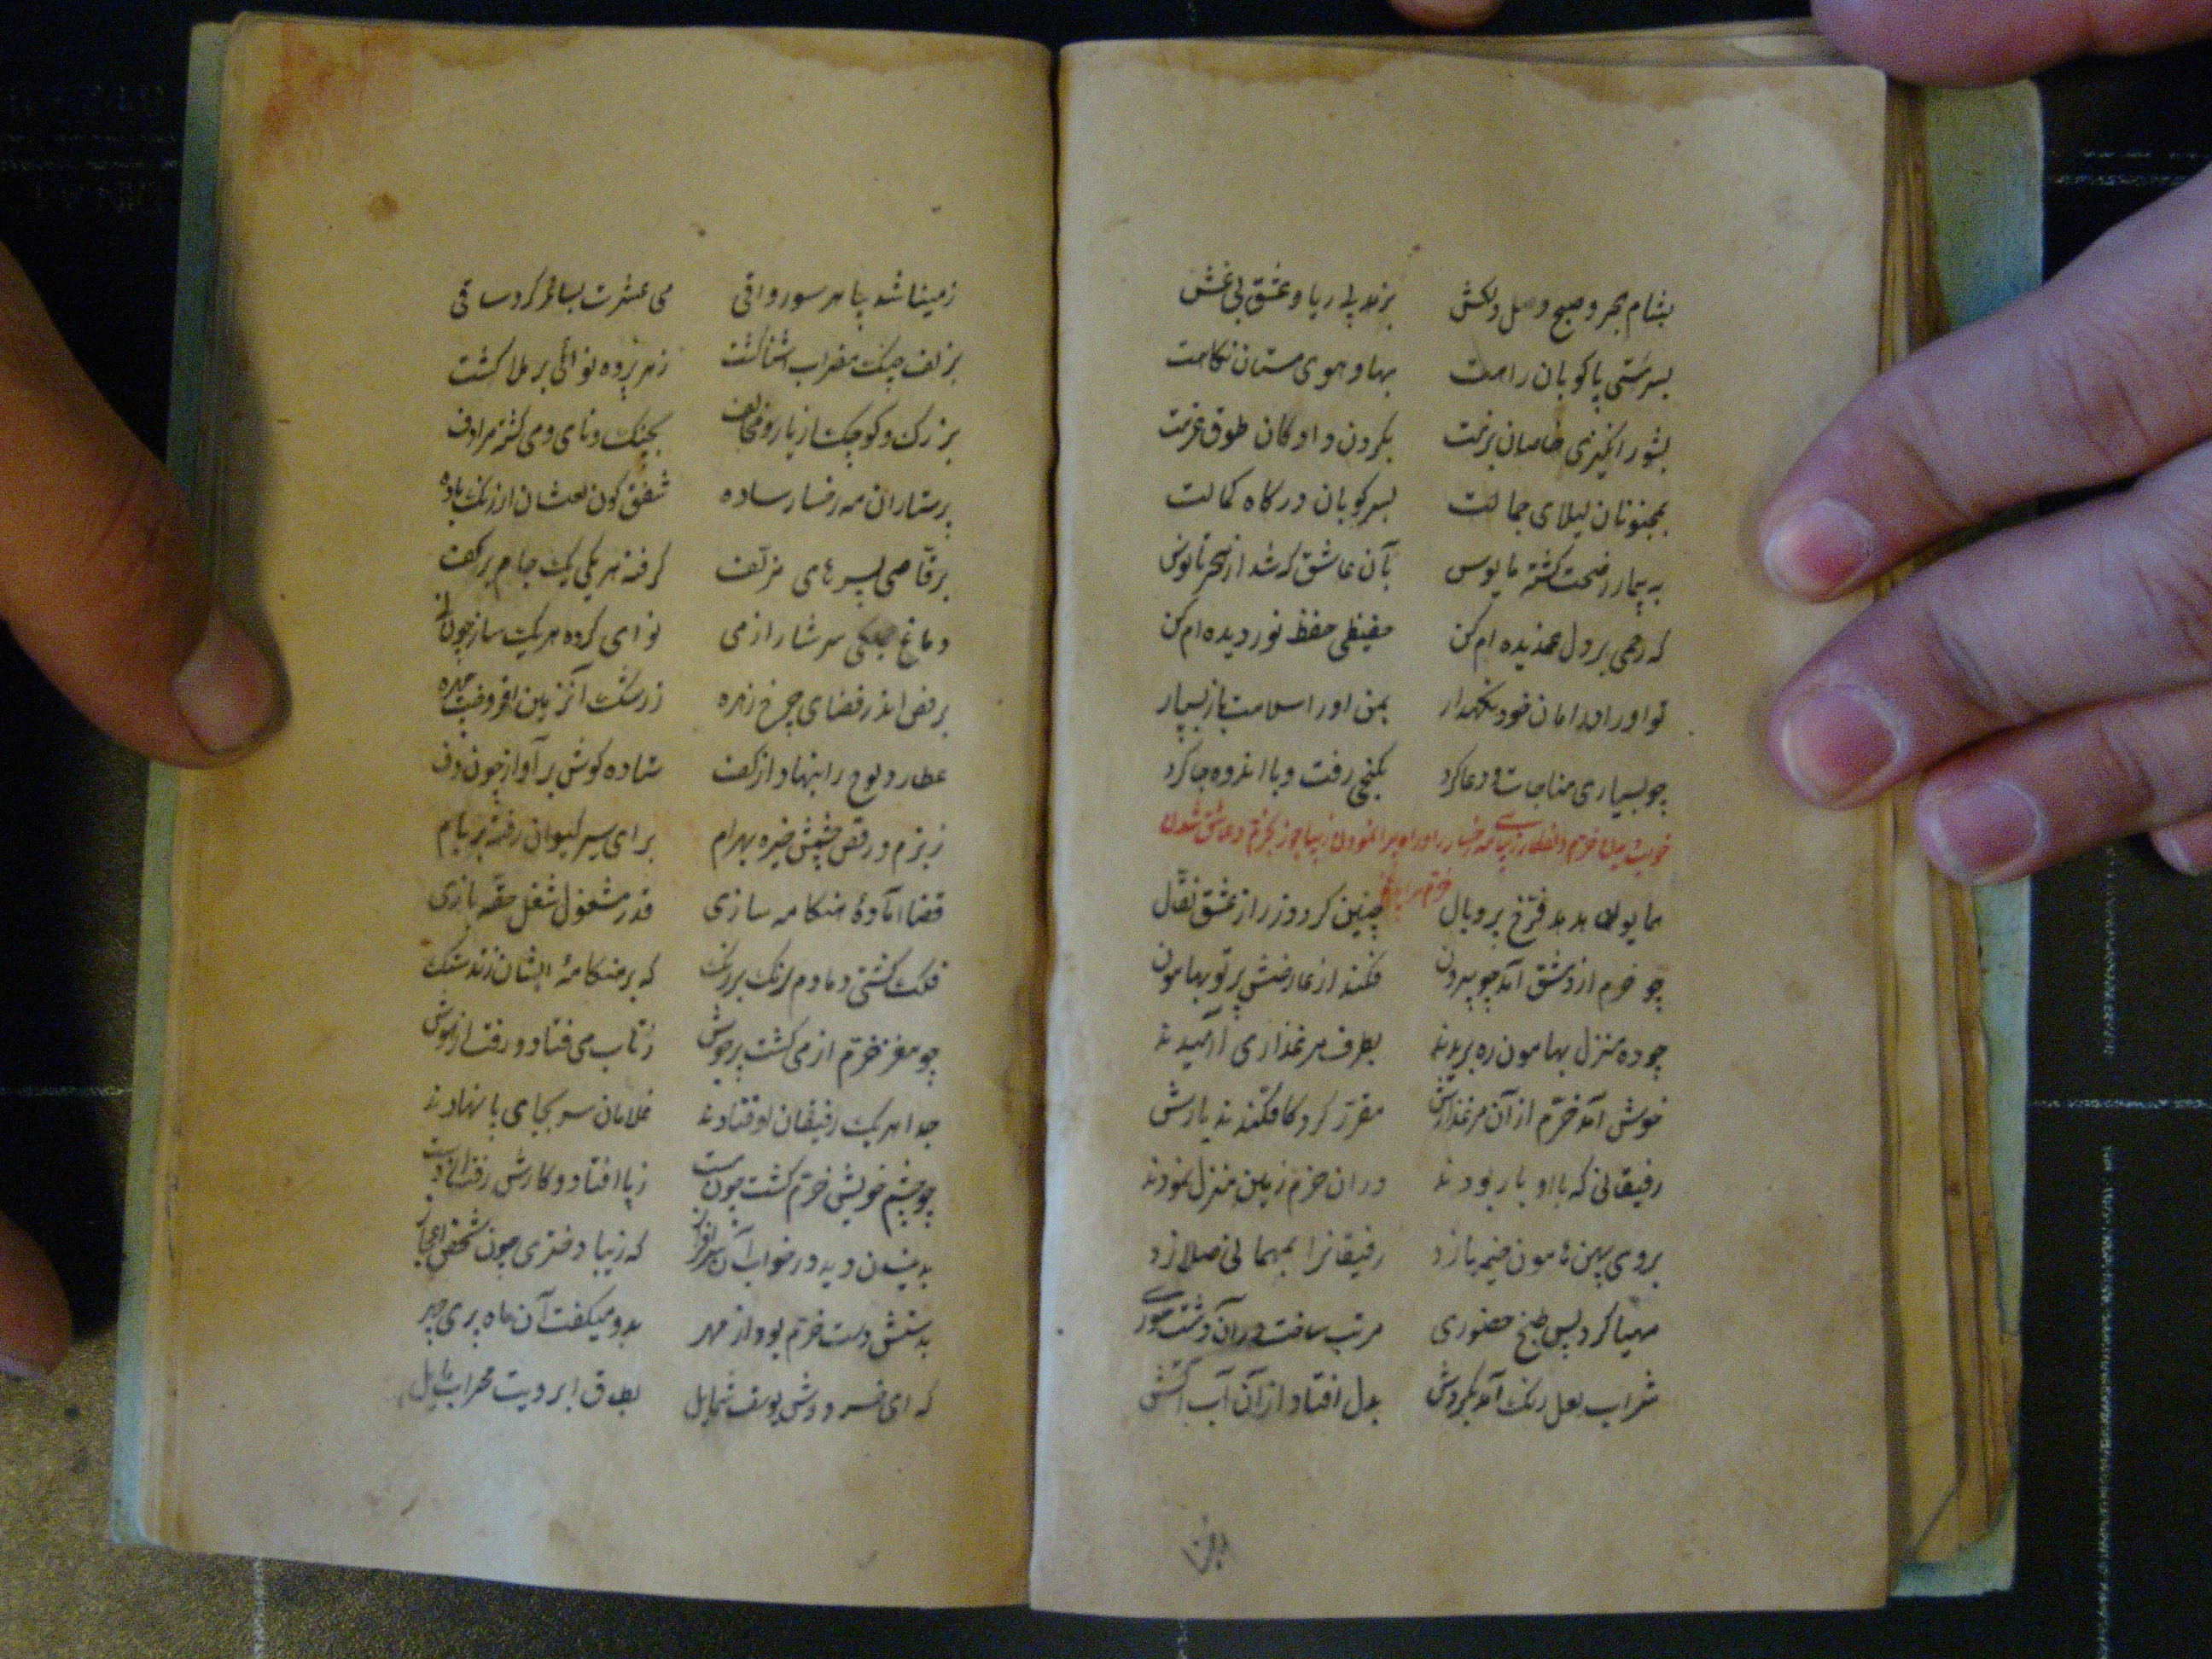 بشام هجر و صبح وصل دلکش برند بی ریا و عشق بی غش
بسرمستی پاکوبان راهت بهاو هوی مستان نکاهت
بشور انکیزی خاصان بزمت بکردن داوکان طوق عزمت
بمجنونان لیلای جمالت بسرکوبان درکاه کمالت
به بیمار ز صحت کشته مایوس بآن عاشق که شد از هجر
که رحمی بر دل غمدیده ام کن حفیظی حفظ نور دیده ام کن
تو او را در امان خود نکهدار بمن او را سلامت باز بسپار
چو بسیاری مناجات و دعا کرد بکنجی رفت و با اندوه جا کرد
خواب دیدن خرم
همایون هدهد فرخ پر و بال چنین کرد وز راز عشق نقال
چو خرم از دمشق آمد چو بیرون فکند از عارضش پرتو بهامون
چو ده منزل بهامون ره بریدند بطرف مرغذاری آرمیدند
خوش آمد خرم از آن مرغذارش مقرر کرد کافکندند بارش
رفیقانی که با او یار بودند در ان خرم زمین منزل نمودند
بروی پهن هامون خیمه با زد رفیقانرا بمهمانی صلا زد
مهیا کرد پس طبخ حضوری مرتب ساخت در آن دشت سوری
شراب لعل رنک آمد بکردش بدل افتاد از آن آب آتش
زمینا شد بپا هر سو رواقی می عشرت بساغر کرد ساقی
بزلف چنک مضراب آشنا کشت ز هر پرده نوائی بر ملا کشت
بزرک و کوچک از یار و مخالف بچنک و نای و می کشته مرادف
پرستاران مه رخسار ساده شفق کون لعلشان از رنک باده
برقاصی پسرهای مزلف کرفته هر یکی یک جام بر کف
دماغ سرشار از می نوای کرده هر یک ساز چون نی
برقص اندر فضای چرخ زهره ز رشک آنزمین افروخت چهره
عطارد لوح را بنهاد از کف ستاده کوش بر آواز چون دف
ز بزم و رقص چشمش خیره بهرام برای سیر کیوان رفته بر بام
قضا آمادهٔ هنکامه سازی قدر مشغول شغل حقه بازی
فلک کشتی دمادم رنک بر رنک که بر هنکامهٔ ایشان زند سنک
چو مغز خرم از می کشت پر جوش ز تاب می فتاد و رفت از هوش
جدا هر یک رفیقان اوفتادند غلامان سر بجای پا نهادند
چو چشم خویش خرم کشت چون مست ز پا افتاد و کارش رفت از دست
بدینسان دید در خواب آن سرافراز که زیبا دختری چون شخص اعجاز
بدستش دست خرم بود از مهر بدو میکفت آن ماه پری چهر
که ای خسرو وش یوسف شمایل بطاق ابرویت محراب مایل